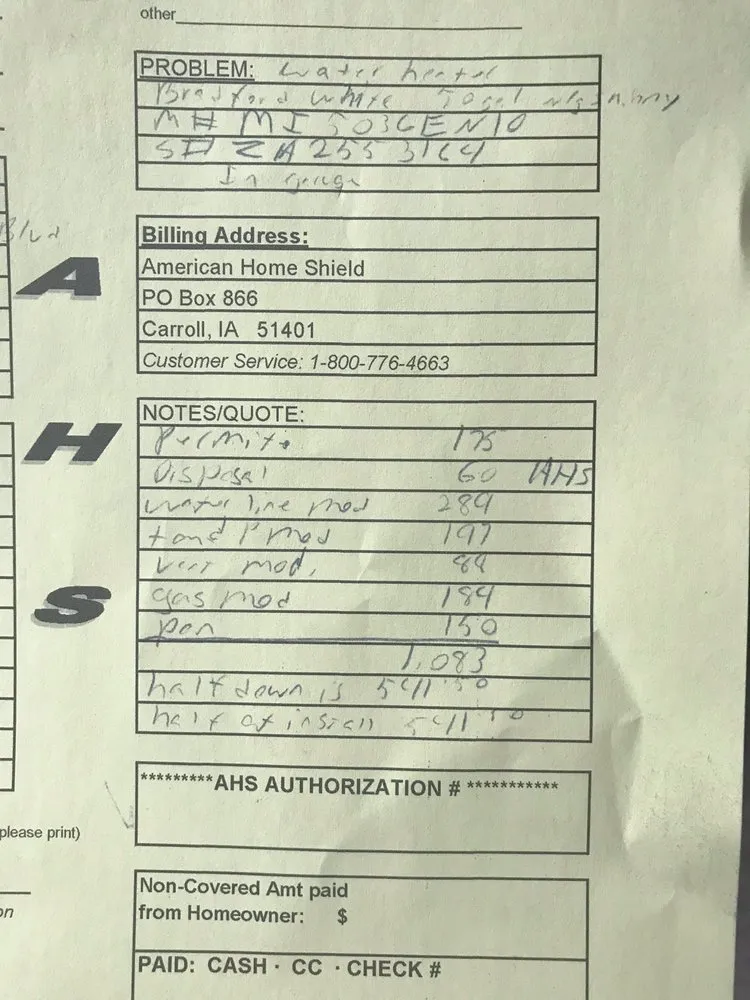 other
PROBLEM: water heater
Bradford White 50 gal
M# MI5036EN10
S# ZA2553164
In garage
Blvd
Billing Address:
American Home Shield
PO Box 866
Carroll, IA 51401
Customer Service: 1-800-776-4663
A
H
S
NOTES/QUOTE:
Permits 175
Disposal 60 AHS
water line mod 289
t and P mod 197
vent mod. 88
gas mod 184
pan 150
1,083
half down is 541.50
half at install 541.50
*********AHS AUTHORIZATION # ***********
please print)
on
Non-Covered Amt paid
from Homeowner: $
PAID: CASH · CC · CHECK #